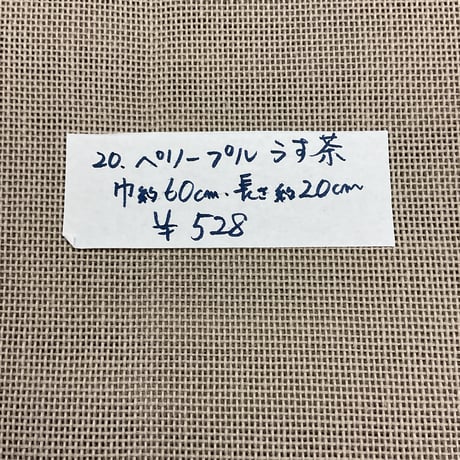 20. ペリープル うす茶
巾約60cm、長さ約20cm
¥528